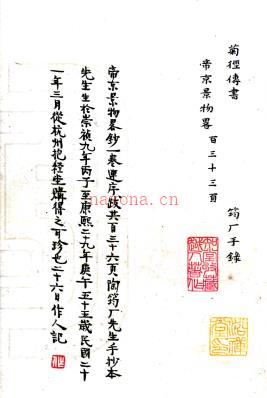 菊徑傳書
帝京景物畧 百三十三頁
筠厂手錄
帝京景物畧鈔一卷連序跋共百三十六頁陶筠厂先生手抄本
先生生於崇禎九年丙子至康熙二十九年庚午五十五歲民國二十
一年三月從杭州抱经堂購得之可珍也二十六日作人記
知堂收藏越人著作